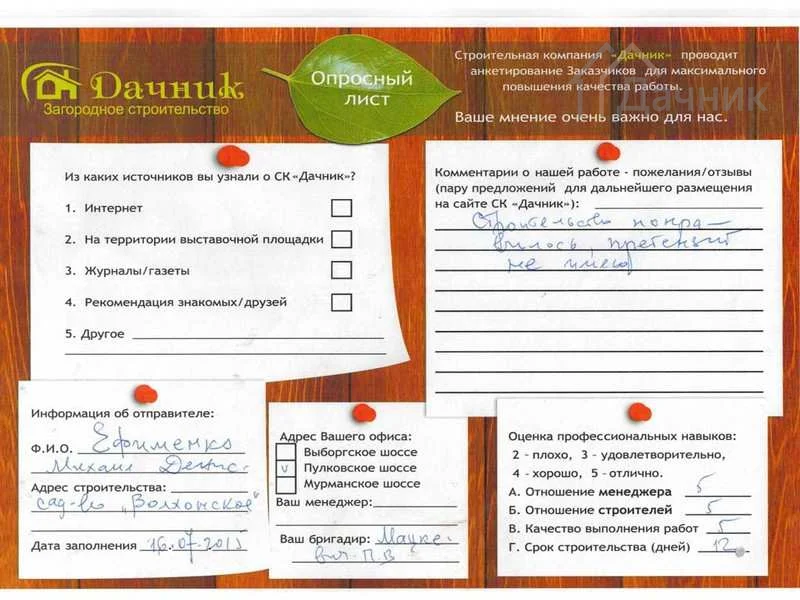 Дачник
Загородное строительство
Опросный
лист
Строительная компания «Дачник» проводит
анкетирование Заказчиков для максимального
повышения качества работы.
Дачник
Ваше мнение очень важно для нас.
Из каких источников вы узнали о СК «Дачник»?
1. Интернет
2. На территории выставочной площадки
3. Журналы/газеты
4. Рекомендация знакомых/друзей
5. Другое
Комментарии о нашей работе - пожелания/отзывы
(пару предложений для дальнейшего размещения
на сайте СК «Дачник»):
Строительство понра-
вилось, претензий
не имею
Информация об отправителе:
Ф.И.О. Ефименко
Михаил
Адрес строительства:
сад-во „Волхонское"
Дата заполнения 16.07.2015
Адрес Вашего офиса:
Выборгское шоссе
v Пулковское шоссе
Мурманское шоссе
Ваш менеджер:
Ваш бригадир: Мацке-
вич П.В
Оценка профессиональных навыков:
2 - плохо, 3 - удовлетворительно,
4 - хорошо, 5 - отлично.
А. Отношение менеджера 5
Б. Отношение строителей 5
В. Качество выполнения работ 5
Г. Срок строительства (дней) 12